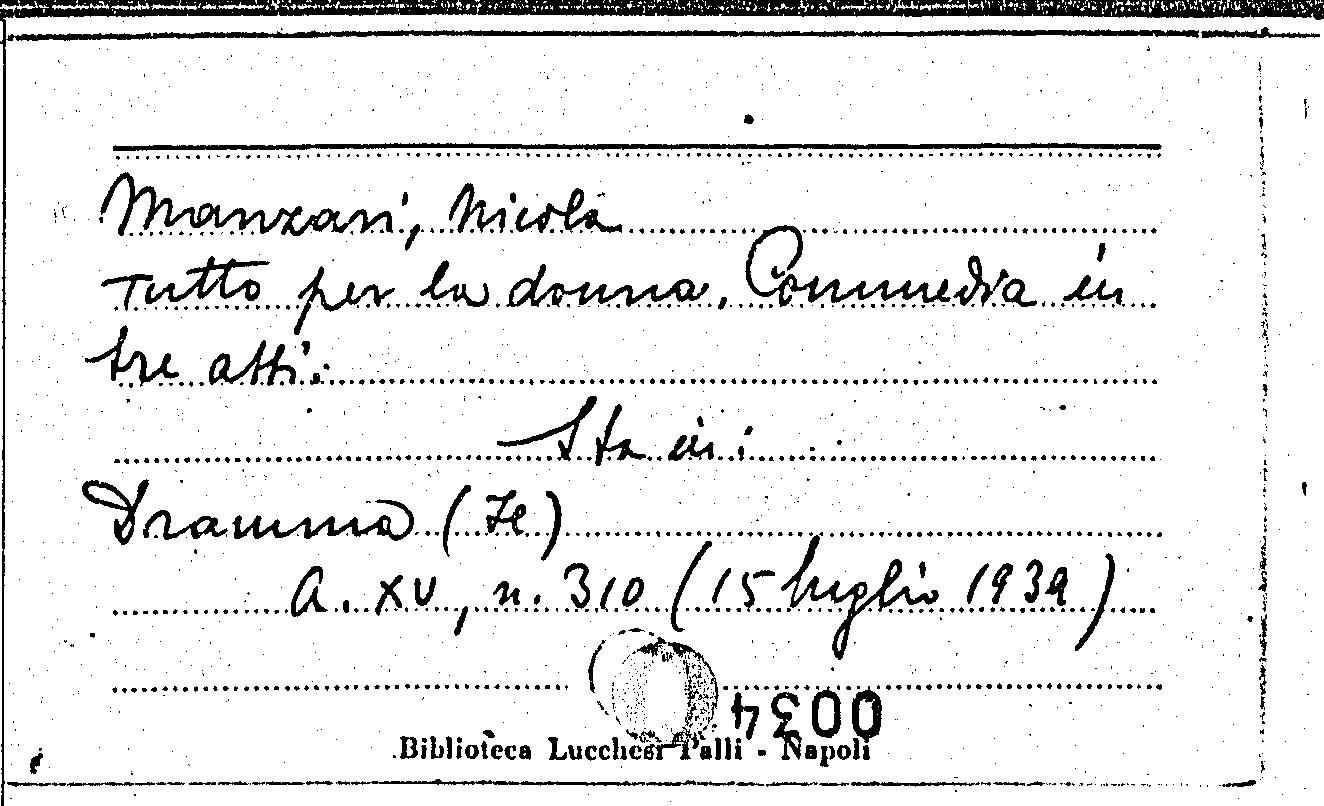 Manzari, Nicola
Tutto per la donna. Commedia in
tre atti.
Sta in:
Dramma (Il)
A. XV, n. 310 (15 luglio 1939)
0034
Biblioteca Lucchesi Palli - Napoli